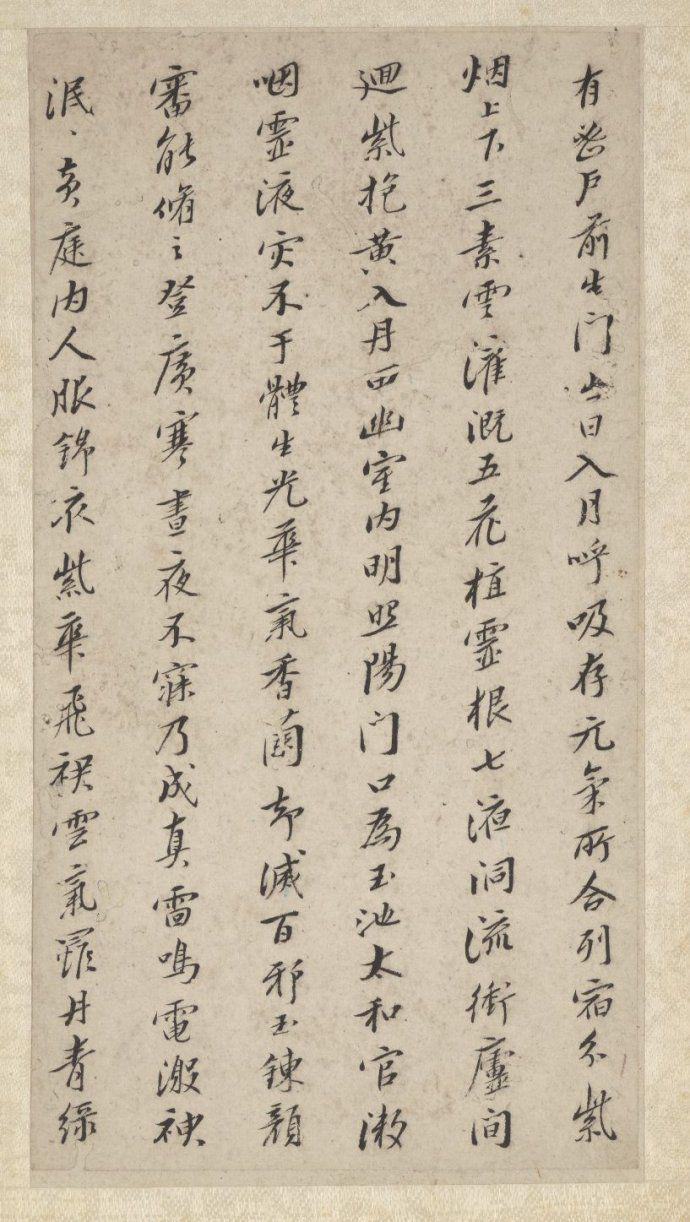 有密户前生门出日入月呼吸存元氣所合列宿分紫
烟上下三素雲灌溉五花植靈根七液洞流衝廬間
迴紫抱黄入丹田幽室内明照陽门口為玉池太和官漱
咽靈液灾不干體生光華氣香蘭却滅百邪玉鍊顔
審能脩之登廣寒晝夜不寐乃成真雷鳴電激神
泯〻黄庭内人服錦衣紫華飛裙雲氣羅丹青緑